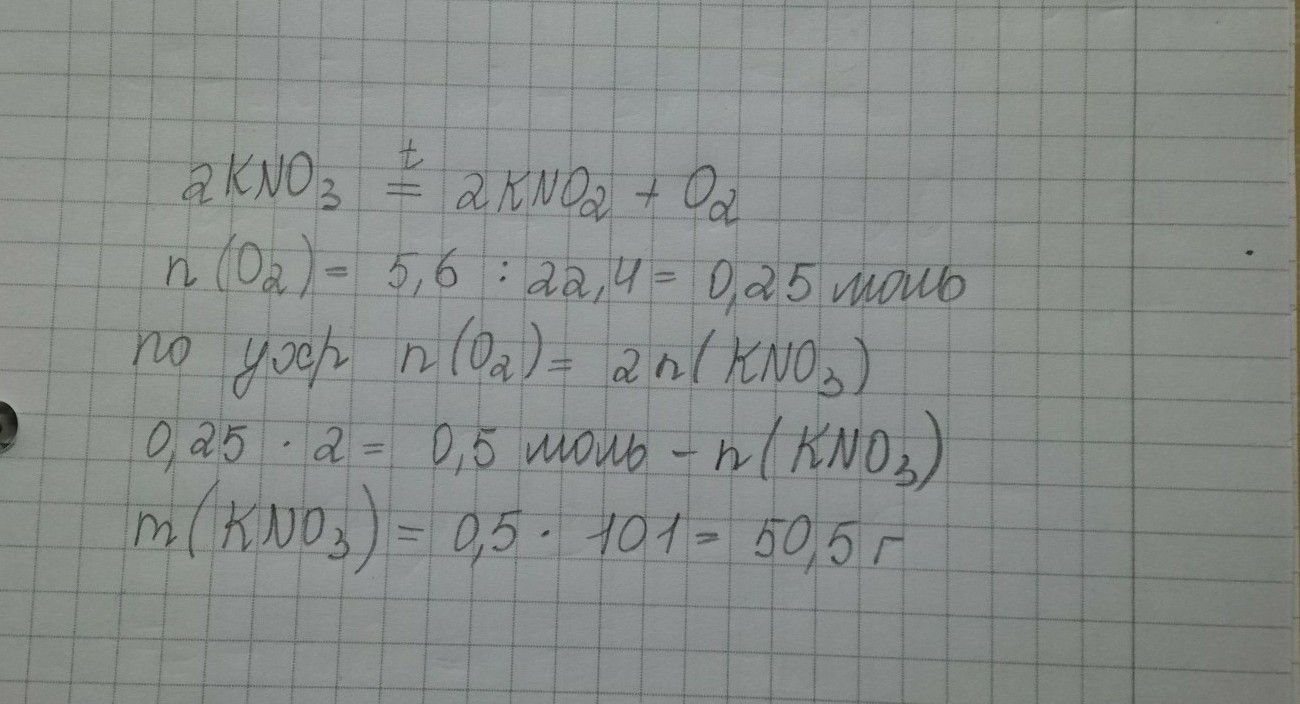 2KNO₃ =ᵗ 2KNO₂ + O₂
n(O₂) = 5,6 : 22,4 = 0,25 моль
по ухр n(O₂) = 2n(KNO₃)
0,25 · 2 = 0,5 моль – n(KNO₃)
m(KNO₃) = 0,5 · 101 = 50,5 г